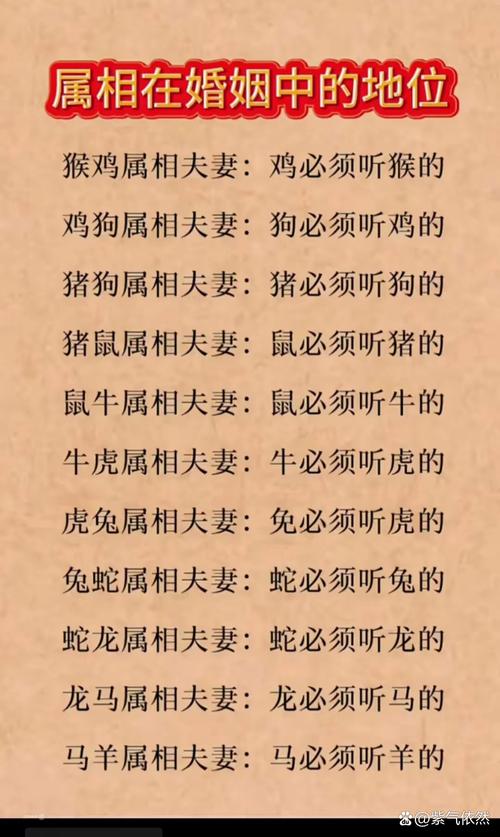 属相在婚姻中的地位
猴鸡属相夫妻：鸡必须听猴的
鸡狗属相夫妻：狗必须听鸡的
猪狗属相夫妻：猪必须听狗的
猪鼠属相夫妻：鼠必须听猪的
鼠牛属相夫妻：鼠必须听牛的
牛虎属相夫妻：牛必须听虎的
虎兔属相夫妻：兔必须听虎的
兔蛇属相夫妻：蛇必须听兔的
蛇龙属相夫妻：蛇必须听龙的
龙马属相夫妻：龙必须听马的
马羊属相夫妻：马必须听羊的
@紫气依然